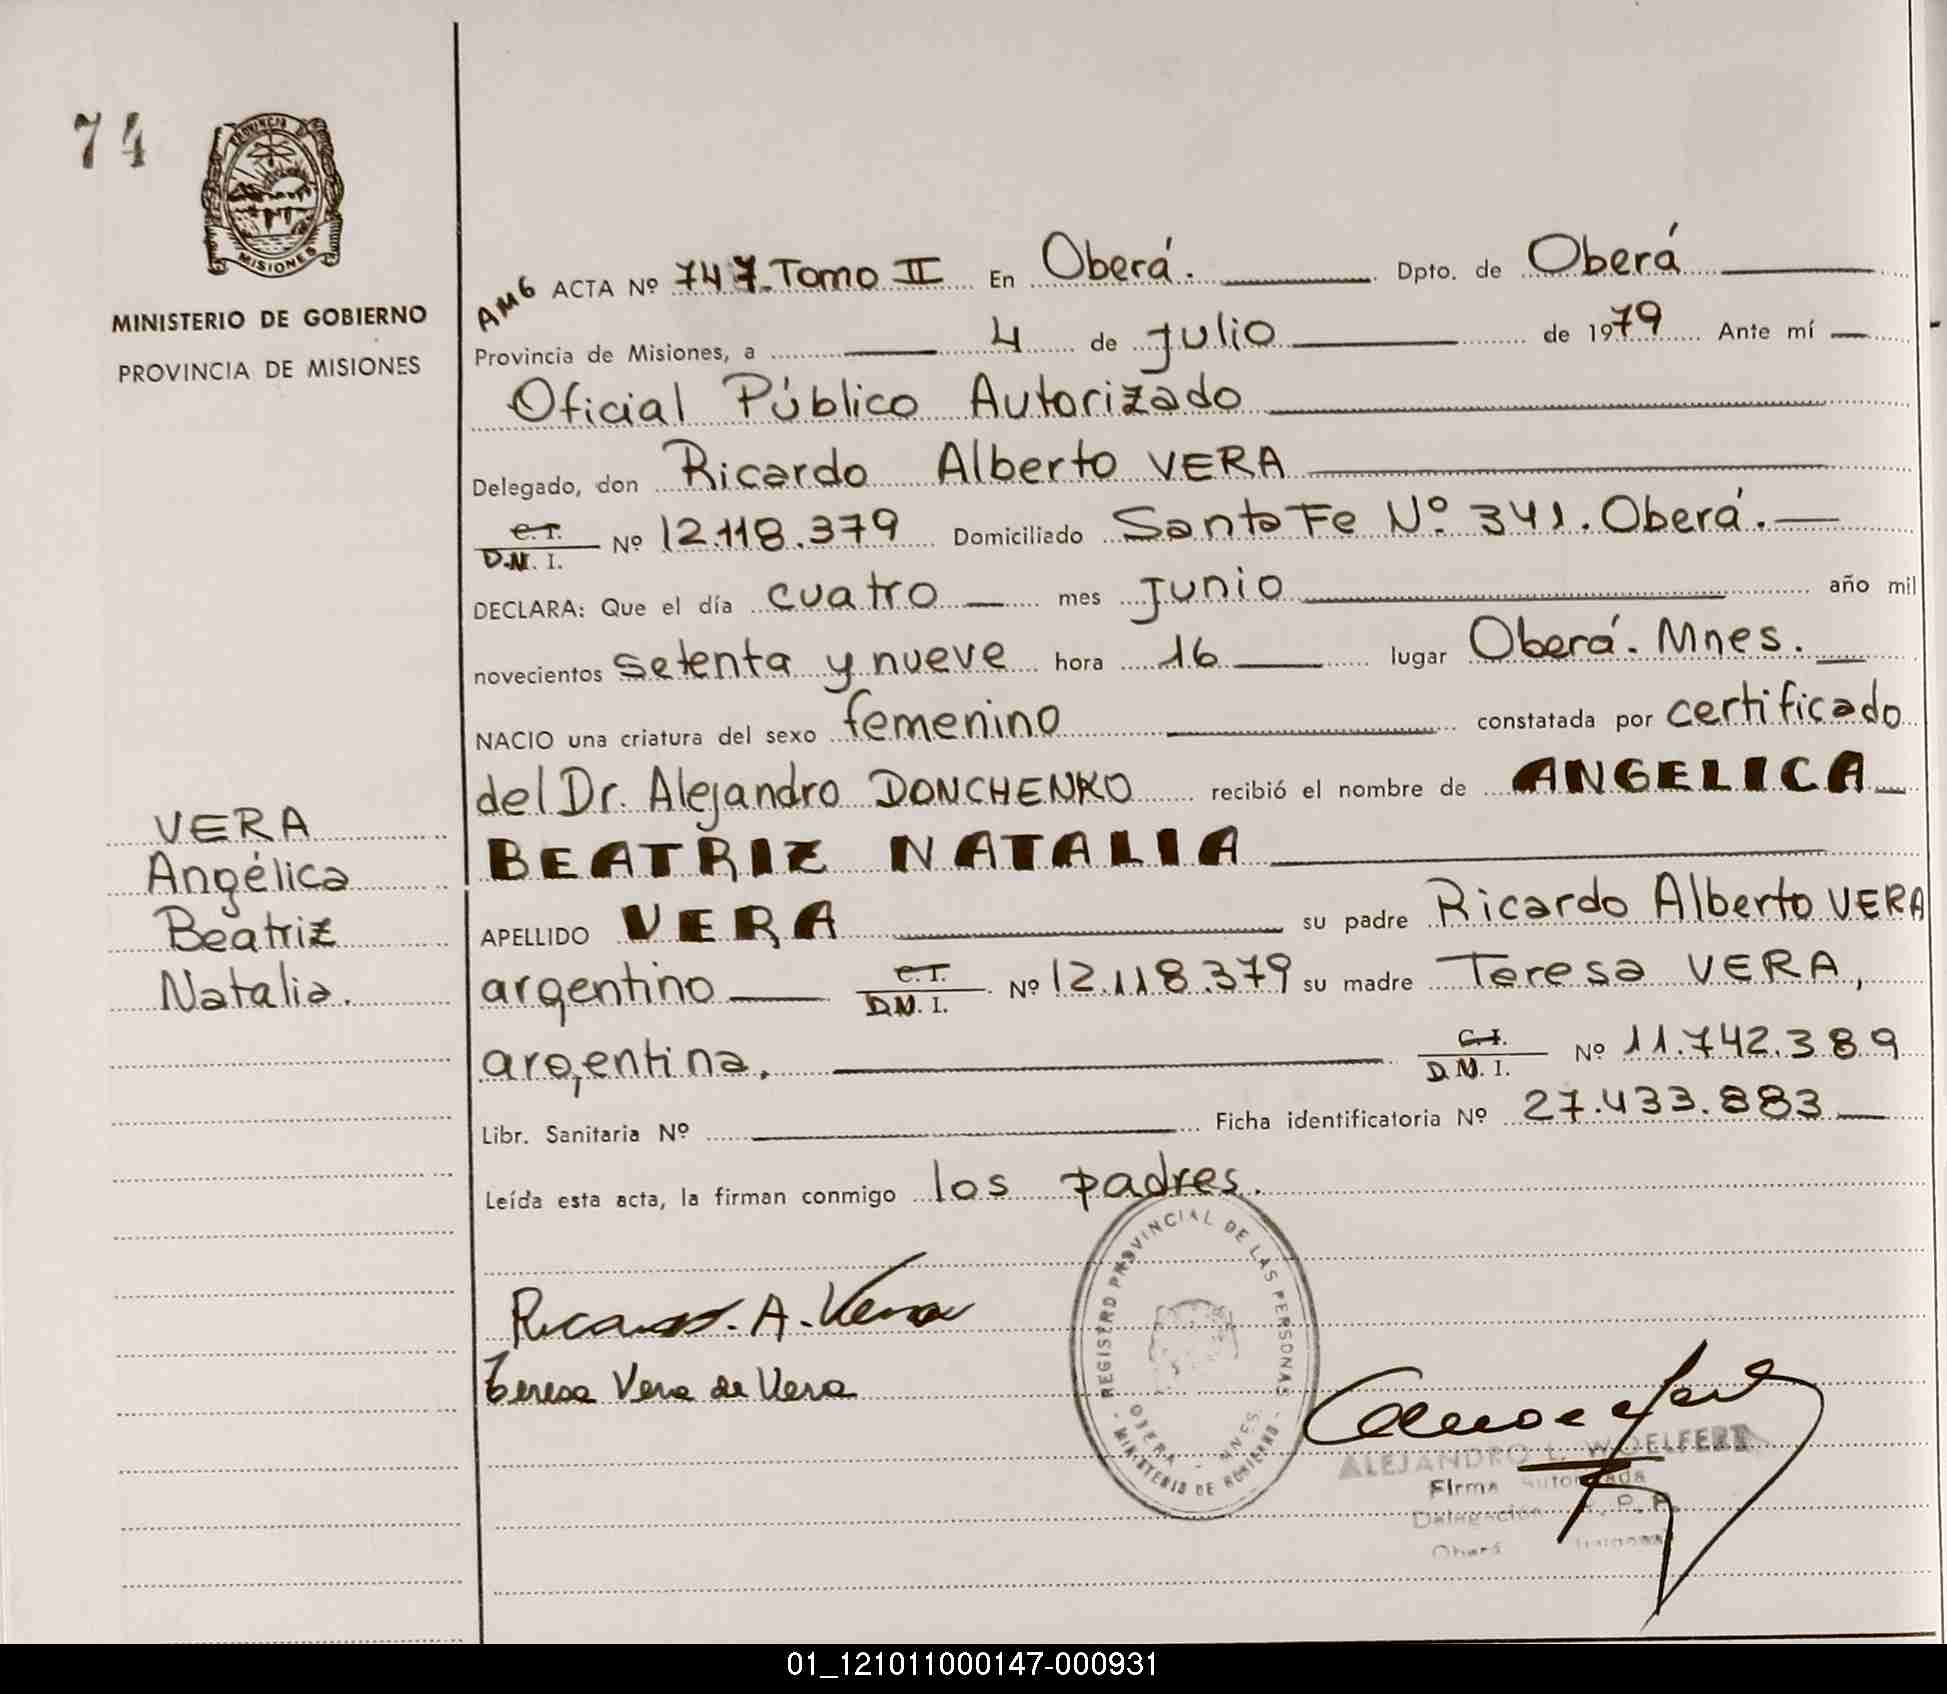 74
PROVINCIA DE
MISIONES
MINISTERIO DE GOBIERNO
PROVINCIA DE MISIONES
VERA
Angélica
Beatriz
Natalia.
AMG ACTA Nº 747. Tomo II En Oberá. Dpto. de Oberá
Provincia de Misiones, a 4 de Julio de 1979 Ante mí
Oficial Público Autorizado
Delegado, don Ricardo Alberto VERA
C.I.
D.N.I. Nº 12.118.379 Domiciliado Santa Fe Nº 341. Oberá.
DECLARA: Que el día cuatro mes Junio año mil
novecientos setenta y nueve hora 16 lugar Oberá. Mnes.
NACIO una criatura del sexo femenino constatada por certificado
del Dr. Alejandro DONCHENKO recibió el nombre de ANGELICA
BEATRIZ NATALIA
APELLIDO VERA su padre Ricardo Alberto VERA
argentino C.I.
D.N.I. Nº 12.118.379 su madre Teresa VERA,
argentina. C.I.
D.N.I. Nº 11.742.389
Libr. Sanitaria Nº Ficha identificatoria Nº 27.433.883
Leída esta acta, la firman conmigo los padres.
Ricardo. A. Vera
Teresa Vera de Vera
REGISTRO PROVINCIAL DE LAS PERSONAS
OBERA - MNES.
- MINISTERIO DE GOBIERNO -
ALEJANDRO L. WOELFERT
Firma Autorizada
Delegación R. P. P.
Oberá Misiones
01_121011000147-000931